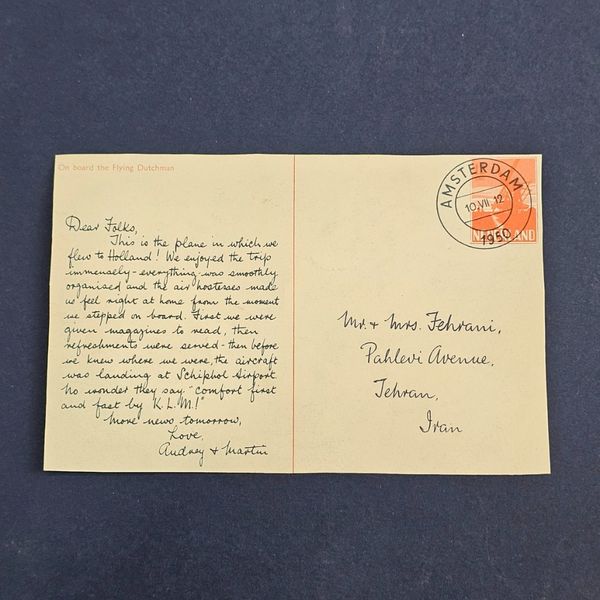 On board the Flying Dutchman
Dear Folks,
This is the plane in which we
flew to Holland! We enjoyed the trip
immensely - everything was smoothly
organised and the air hostesses made
us feel right at home from the moment
we stepped on board. First we were
given magazines to read, then
refreshments were served - then before
we knew where we were, the aircraft
was landing at Schiphol Airport.
No wonder they say "comfort first
and fast by K.L.M!"
More news tomorrow,
Love,
Audrey & Martin
AMSTERDAM
10.VII.12
1950
NEDERLAND
Mr. & Mrs. Tehrani,
Pahlevi Avenue,
Tehran,
Iran